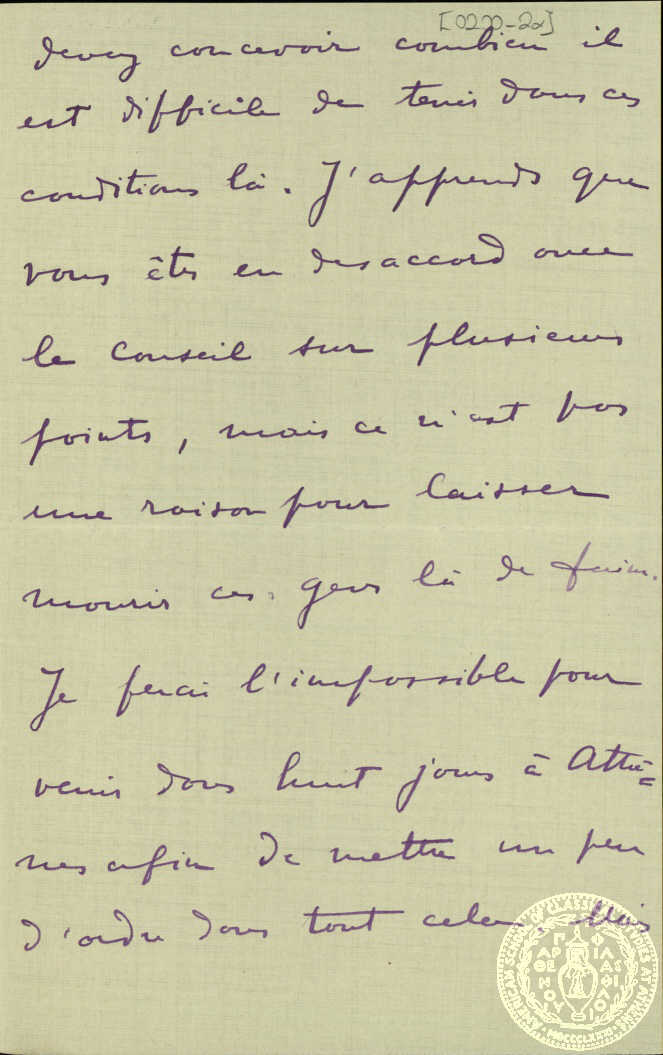 [0220-2α]
devez concevoir combien il
est difficile de tenir dans ces
conditions là. J'apprends que
vous êtes en desaccord avec
le conseil sur plusieurs
points, mais ce n'est pas
une raison pour laisser
mourir ces gens là de faim.
Je ferai l'impossible pour
venir dans huit jours à Athè=
nes afin de mettre un peu
d'ordre dans tout cela. Mais
AMERICAN SCHOOL OF CLASSICAL STUDIES AT ATHENS
MDCCCLXXXI